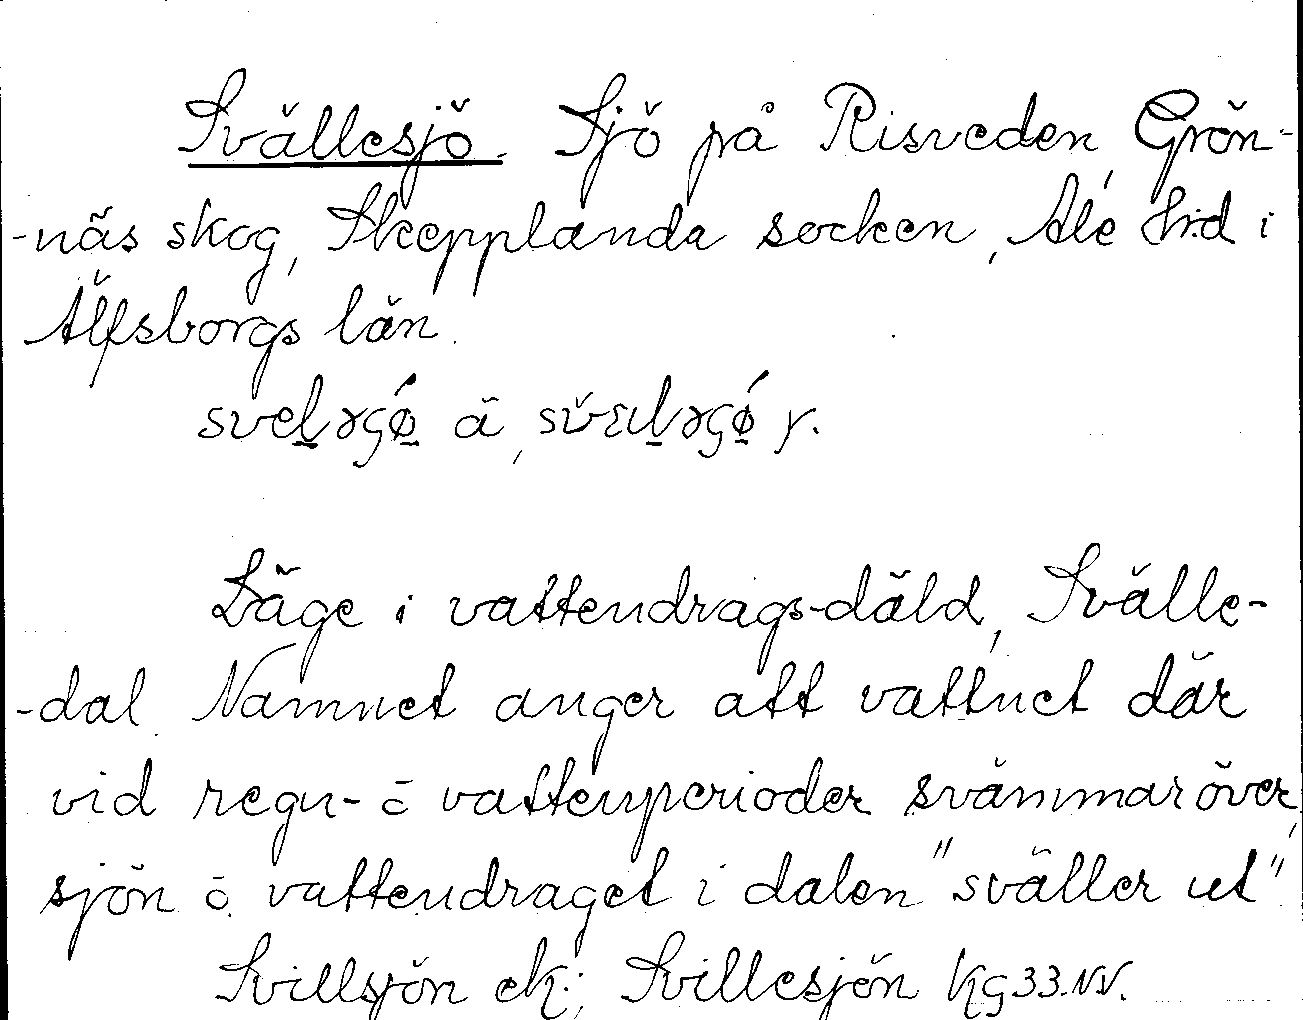 Svällesjö. Sjö på Risveden, Grön-
-näs skog, Skepplanda socken, Ale hrd i
Älfsborgs län.
ä, y.
Läge i vattendrags-däld, Svälle-
-dal. Namnet anger att vattnet där
vid regn- o vattenperioder svämmar över,
sjön o. vattendraget i dalen "sväller ut".
Svillsjön ek.; Svillesjön kg 33.NV.